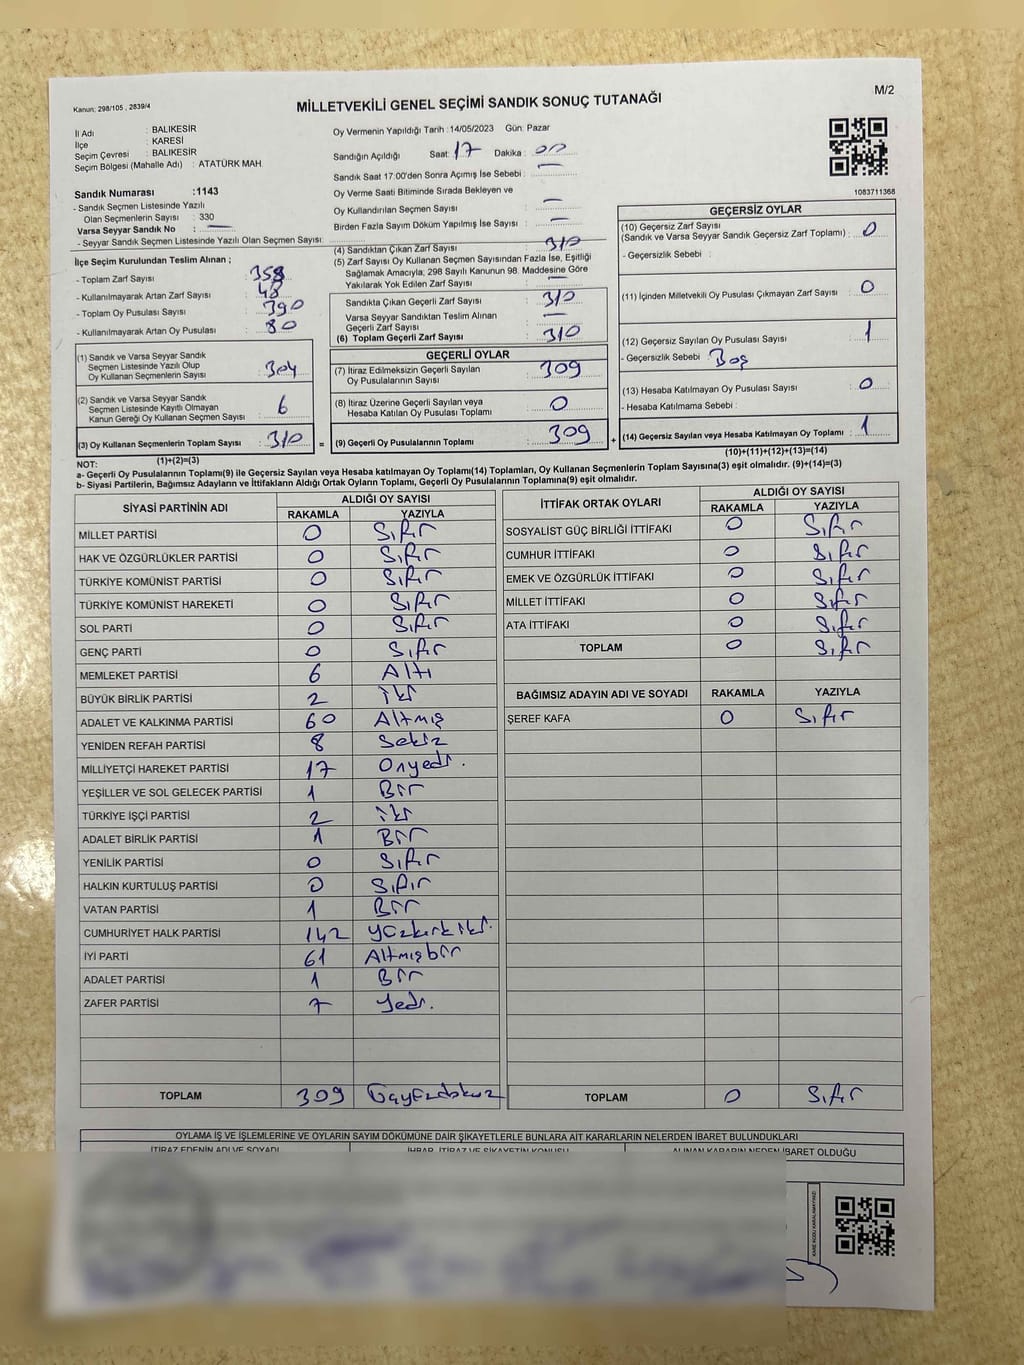 Kanun: 298/105 , 2839/4
MİLLETVEKİLİ GENEL SEÇİMİ SANDIK SONUÇ TUTANAĞI
M/2
İl Adı : BALIKESİR
İlçe : KARESİ
Seçim Çevresi : BALIKESİR
Seçim Bölgesi (Mahalle Adı) : ATATÜRK MAH.
Sandık Numarası :1143
- Sandık Seçmen Listesinde Yazılı
Olan Seçmenlerin Sayısı : 330
Varsa Seyyar Sandık No : —
- Seyyar Sandık Seçmen Listesinde Yazılı Olan Seçmen Sayısı:
Oy Vermenin Yapıldığı Tarih :14/05/2023 Gün: Pazar
Sandığın Açıldığı Saat: 17 Dakika : 00
Sandık Saat 17:00'den Sonra Açımış İse Sebebi : —
Oy Verme Saati Bitiminde Sırada Bekleyen ve
Oy Kullandırılan Seçmen Sayısı : —
Birden Fazla Sayım Döküm Yapılmış İse Sayısı : —
1083711368
İlçe Seçim Kurulundan Teslim Alınan ;
- Toplam Zarf Sayısı : 358
- Kullanılmayarak Artan Zarf Sayısı : 48
- Toplam Oy Pusulası Sayısı : 390
- Kullanılmayarak Artan Oy Pusulası : 80
(1) Sandık ve Varsa Seyyar Sandık
Seçmen Listesinde Yazılı Olup
Oy Kullanan Seçmenlerin Sayısı : 304
(2) Sandık ve Varsa Seyyar Sandık
Seçmen Listesinde Kayıtlı Olmayan
Kanun Gereği Oy Kullanan Seçmen Sayısı : 6
(3) Oy Kullanan Seçmenlerin Toplam Sayısı : 310 =
(1)+(2)=(3)
(4) Sandıktan Çıkan Zarf Sayısı : 310
(5) Zarf Sayısı Oy Kullanan Seçmen Sayısından Fazla İse, Eşitliği
Sağlamak Amacıyla, 298 Sayılı Kanunun 98. Maddesine Göre
Yakılarak Yok Edilen Zarf Sayısı : —
Sandıkta Çıkan Geçerli Zarf Sayısı : 310
Varsa Seyyar Sandıktan Teslim Alınan
Geçerli Zarf Sayısı : —
(6) Toplam Geçerli Zarf Sayısı : 310
GEÇERLİ OYLAR
(7) İtiraz Edilmeksizin Geçerli Sayılan
Oy Pusulalarının Sayısı : 309
(8) İtiraz Üzerine Geçerli Sayılan veya
Hesaba Katılan Oy Pusulası Toplamı : 0
(9) Geçerli Oy Pusulalarının Toplamı : 309 +
GEÇERSİZ OYLAR
(10) Geçersiz Zarf Sayısı
(Sandık ve Varsa Seyyar Sandık Geçersiz Zarf Toplamı) : 0
- Geçersizlik Sebebi :
(11) İçinden Milletvekili Oy Pusulası Çıkmayan Zarf Sayısı : 0
(12) Geçersiz Sayılan Oy Pusulası Sayısı : 1
- Geçersizlik Sebebi : Boş
(13) Hesaba Katılmayan Oy Pusulası Sayısı : 0
- Hesaba Katılmama Sebebi :
(14) Geçersiz Sayılan veya Hesaba Katılmayan Oy Toplamı : 1
(10)+(11)+(12)+(13)=(14)
NOT:
a- Geçerli Oy Pusulalarının Toplamı(9) ile Geçersiz Sayılan veya Hesaba katılmayan Oy Toplamı(14) Toplamları, Oy Kullanan Seçmenlerin Toplam Sayısına(3) eşit olmalıdır. (9)+(14)=(3)
b- Siyasi Partilerin, Bağımsız Adayların ve İttifakların Aldığı Ortak Oyların Toplamı, Geçerli Oy Pusulalarının Toplamına(9) eşit olmalıdır.
SİYASİ PARTİNİN ADI ALDIĞI OY SAYISI
RAKAMLA YAZIYLA
MİLLET PARTİSİ 0 Sıfır
HAK VE ÖZGÜRLÜKLER PARTİSİ 0 Sıfır
TÜRKİYE KOMÜNİST PARTİSİ 0 Sıfır
TÜRKİYE KOMÜNİST HAREKETİ 0 Sıfır
SOL PARTİ 0 Sıfır
GENÇ PARTİ 0 Sıfır
MEMLEKET PARTİSİ 6 Altı
BÜYÜK BİRLİK PARTİSİ 2 iki
ADALET VE KALKINMA PARTİSİ 60 Altmış
YENİDEN REFAH PARTİSİ 8 Sekiz
MİLLİYETÇİ HAREKET PARTİSİ 17 Onyedi.
YEŞİLLER VE SOL GELECEK PARTİSİ 1 Bir
TÜRKİYE İŞÇİ PARTİSİ 2 iki
ADALET BİRLİK PARTİSİ 1 Bir
YENİLİK PARTİSİ 0 Sıfır
HALKIN KURTULUŞ PARTİSİ 0 Sıfır
VATAN PARTİSİ 1 Bir
CUMHURİYET HALK PARTİSİ 142 yüzkırkiki.
İYİ PARTİ 61 Altmışbir
ADALET PARTİSİ 1 Bir
ZAFER PARTİSİ 7 Yedi.
TOPLAM 309 Üçyüzdokuz
İTTİFAK ORTAK OYLARI ALDIĞI OY SAYISI
RAKAMLA YAZIYLA
SOSYALİST GÜÇ BİRLİĞİ İTTİFAKI 0 Sıfır
CUMHUR İTTİFAKI 0 Sıfır
EMEK VE ÖZGÜRLÜK İTTİFAKI 0 Sıfır
MİLLET İTTİFAKI 0 Sıfır
ATA İTTİFAKI 0 Sıfır
TOPLAM 0 Sıfır
BAĞIMSIZ ADAYIN ADI VE SOYADI RAKAMLA YAZIYLA
ŞEREF KAFA 0 Sıfır
TOPLAM 0 Sıfır
OYLAMA İŞ VE İŞLEMLERİNE VE OYLARIN SAYIM DÖKÜMÜNE DAİR ŞİKAYETLERLE BUNLARA AİT KARARLARIN NELERDEN İBARET BULUNDUKLARI
İTİRAZ EDENİN ADI VE SOYADI İHBAR, İTİRAZ VE ŞİKAYETİN KONUSU ALINAN KARARIN NEDEN İBARET OLDUĞU
KARE KODU KARALAMAYINIZ!